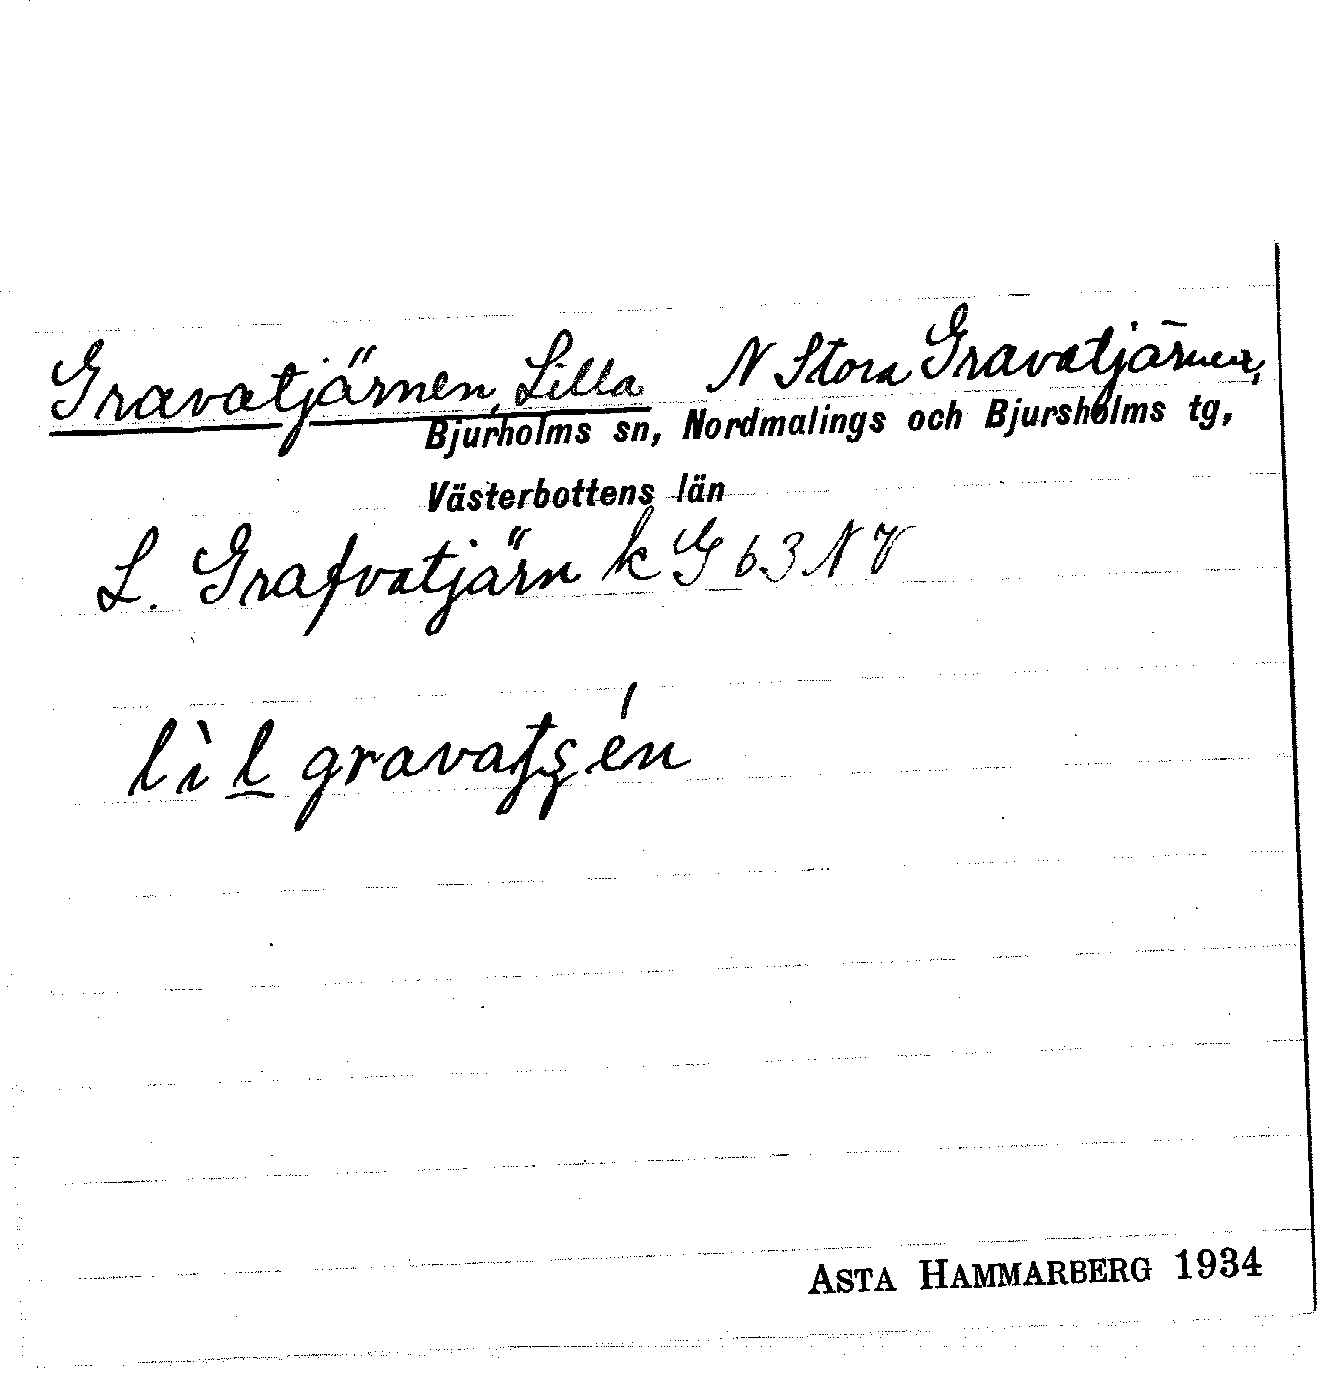 Gravatjärnen, Lilla N Stora Gravatjärnen,
Bjurholms sn, Nordmalings och Bjursholms tg,
Västerbottens län
L. Grafvatjärn k G 63 NV
lìl gravatȿén
ASTA HAMMARBERG 1934